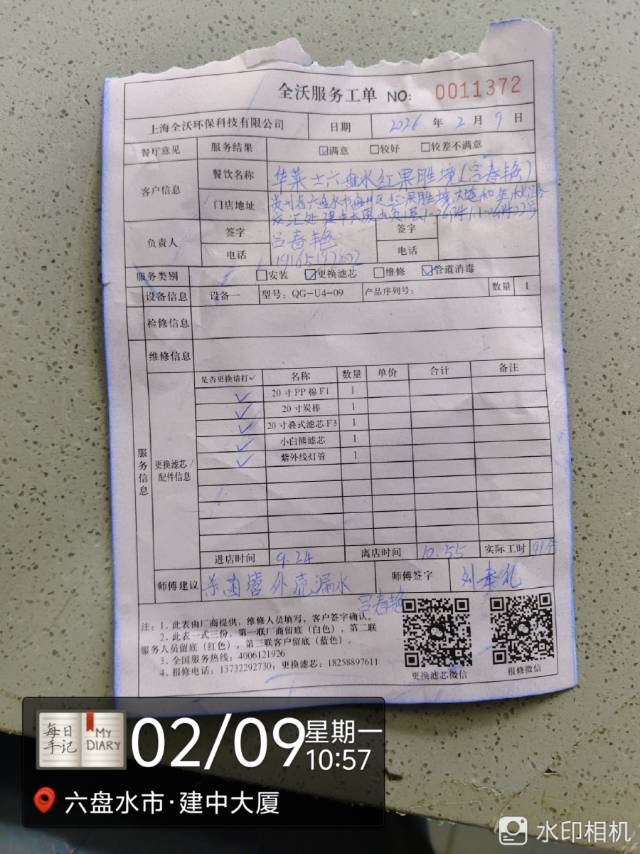 全沃服务工单 NO: 0011372
上海全沃环保科技有限公司 日期 2026 年 2 月 9 日
餐厅意见 服务结果 ☑满意 □较好 □较差不满意
客户信息 餐饮名称 华莱士六盘水红果胜境(吕春艳)
门店地址 贵州省六盘水市
负责人 签字 吕春艳 签字
电话 电话
服务类别 □安装 ☑更换滤芯 □维修 ☑管道消毒
设备信息 设备一 型号: QG-U4-09 产品序列号: 数量 1
检修信息
维修信息
服务信息 更换滤芯/配件信息
是否更换请打✓ 名称 数量 单价 合计 备注
✓ 20寸PP棉F1 1
✓ 20寸炭棒 1
✓ 20寸叠式滤芯F3 1
✓ 小白熊滤芯 1
✓ 紫外线灯管 1
进店时间 9.24 离店时间 10.55 实际工时 91分
师傅建议 杀菌管外壳漏水 师傅签字
吕春艳
注: 1. 此表由厂商提供, 维修人员填写, 客户签字确认。
2. 此表一式三份, 第一联厂商留底(白色), 第二联
服务人员留底(红色), 第三联客户留底(蓝色)。
3. 全国服务热线: 4006121926
4. 报修电话: 13732292730; 更换滤芯: 18258897611
更换滤芯微信 报修微信
每日手记 MY DIARY
02/09 星期一 10:57
六盘水市·建中大厦
水印相机